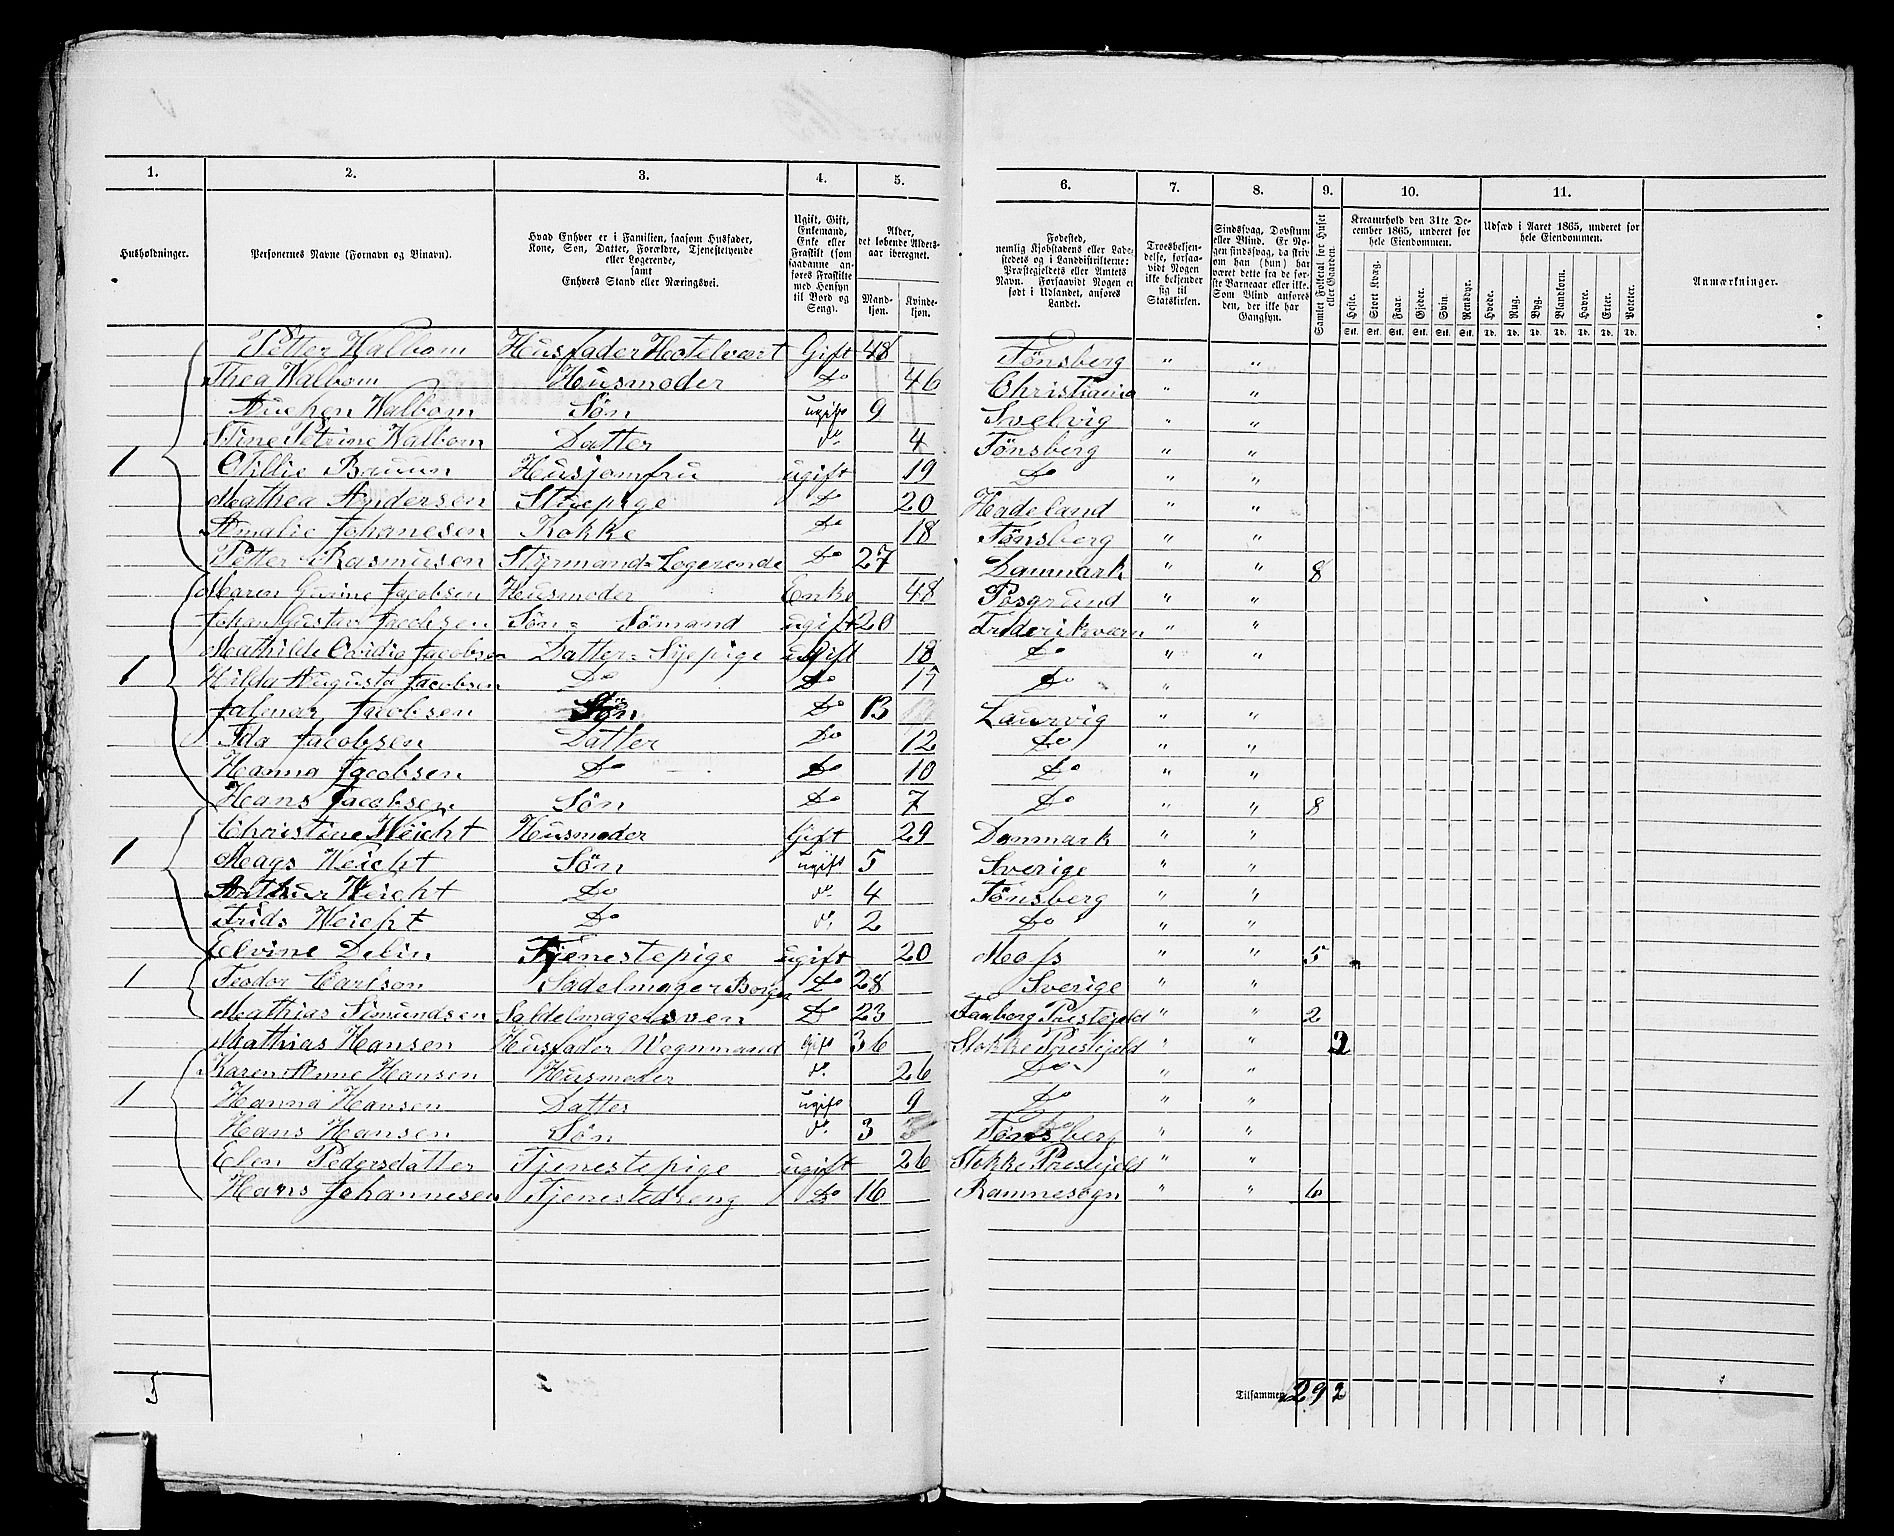 1. 2. 3. 4. 5. 6. 7. 8. 9. 10. 11.
Husholdninger.
Personernes Navne (Fornavn og Binavn).
Hvad Enhver er i Familien, saasom Husfader, Kone, Søn, Datter, Forældre, Tjenestetyende eller Logerende, samt Enhvers Stand eller Næringsvei.
Ugift, Gift, Enkemand, Enke eller Fraskilt (som saadanne anføres Fraskilte med Hensyn til Bord og Seng).
Alder, det løbende Alders-aar iberegnet.
Mandkjøn. Kvindekjøn.
Fødested, nemlig Kjøbstadens eller Ladestedets og i Landdistrikterne: Præstegjeldets eller Amtets Navn. Forsaavidt Nogen er født i Udlandet, anføres Landet.
Troesbekjendelse, forsaavidt Nogen ikke bekjender sig til Statskirken.
Sindssvag, Døvstum eller Blind. Er Nogen sindssvag, da skrives om han (hun) har været dette fra de første Barneaar eller ikke. Som Blind anføres den, der ikke har Gangsyn.
Samlet Folketal for Huset eller Gaarden.
Kreaturhold den 31te December 1865, underet for hele Eiendommen.
Heste. Stort Kvæg. Faar. Gjeder. Svin. Rensdyr.
Stk. Stk. Stk. Stk. Stk. Stk.
Udsæd i Aaret 1865, underet for hele Eiendommen.
Hvede. Rug. Byg. Blandkorn. Havre. Erter. Poteter.
Td. Td. Td. Td. Td. Td. Td.
Anmærkninger.
Petter Walbom Husfader Hotelvært Gift 48 Tønsberg " "
Thea Walbom Husmoder Do 46 Christiania " "
Walbom Søn ugift 9 Svelvig " "
Stine Petrine Walbom Datter do. 4 Tønsberg " "
1 Otillie Bruun Husjomfru ugift 19 Do " "
Mathea Andersen Stuepige Do 20 Hadeland " "
Amalie Johanesen Kokke Do 18 Tønsberg " "
Petter Rasmusen Styrmand=Logerende Do 27 Danmark " " 8
Maren Gurine Jacobsen Husmoder Enke 48 Posgrund " "
Johan Gustav Jacobsen Søn= Sømand ugift 20 Frederiksværn " "
Mathilde Ovidia Jacobsen Datter=Syepige ugift 18 Do " "
1 Hilda Augusta Jacobsen Do Do 17 Do "
Jalmar Jacobsen Søn Do 13 Laurvig " "
Ida Jacobsen Datter Do 12 Do " "
Hanna Jacobsen Do Do 10 Do " "
Hans Jacobsen Søn Do 7 Do " " 8
Christine Weicht Husmoder Gift 29 Danmark " "
1 Mags Weicht Søn ugift 5 Sverige " "
Arthur Weicht Do do. 4 Tønsberg " "
Frids Weicht Do do. 2 Do " "
Elvine Delin Tjenestepige ugift 20 Moss " " 5
1 Teodor Carlson Sadelmager Borger Do 28 Sverige " "
Mathias Simundsen Saldelmagersven Do 23 Faaberg Prestejeld " " 2
Mathias Hansen Husfader Wognmand Gift 36 Stokke Prestejeld " " 2
Karen Anne Hansen Husmoder do. 26 Do " "
1 Hanna Hansen Datter ugift 9 Do " "
Hans Hansen Søn do. 3 Tønsberg " "
Elen Pedersdatter Tjenestepige ugift 26 Stokke Prestejeld " "
Hans Johannesen Tjenestedreng Do 16 Ramnesogn " " 6
5
Tilsammen 29 2